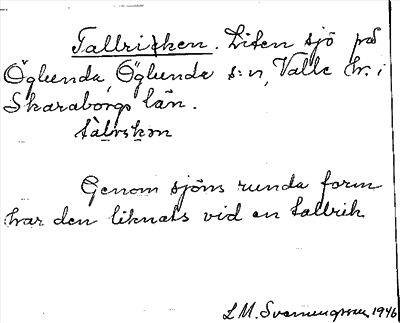 Tallricken. Liten sjö på
Öglunda, Öglunda s:n, Valle hr. i
Skaraborgs län.
tàlrskɒn
Genom sjöns runda form
har den liknats vid en tallrik
L M. Svennungsson 1946